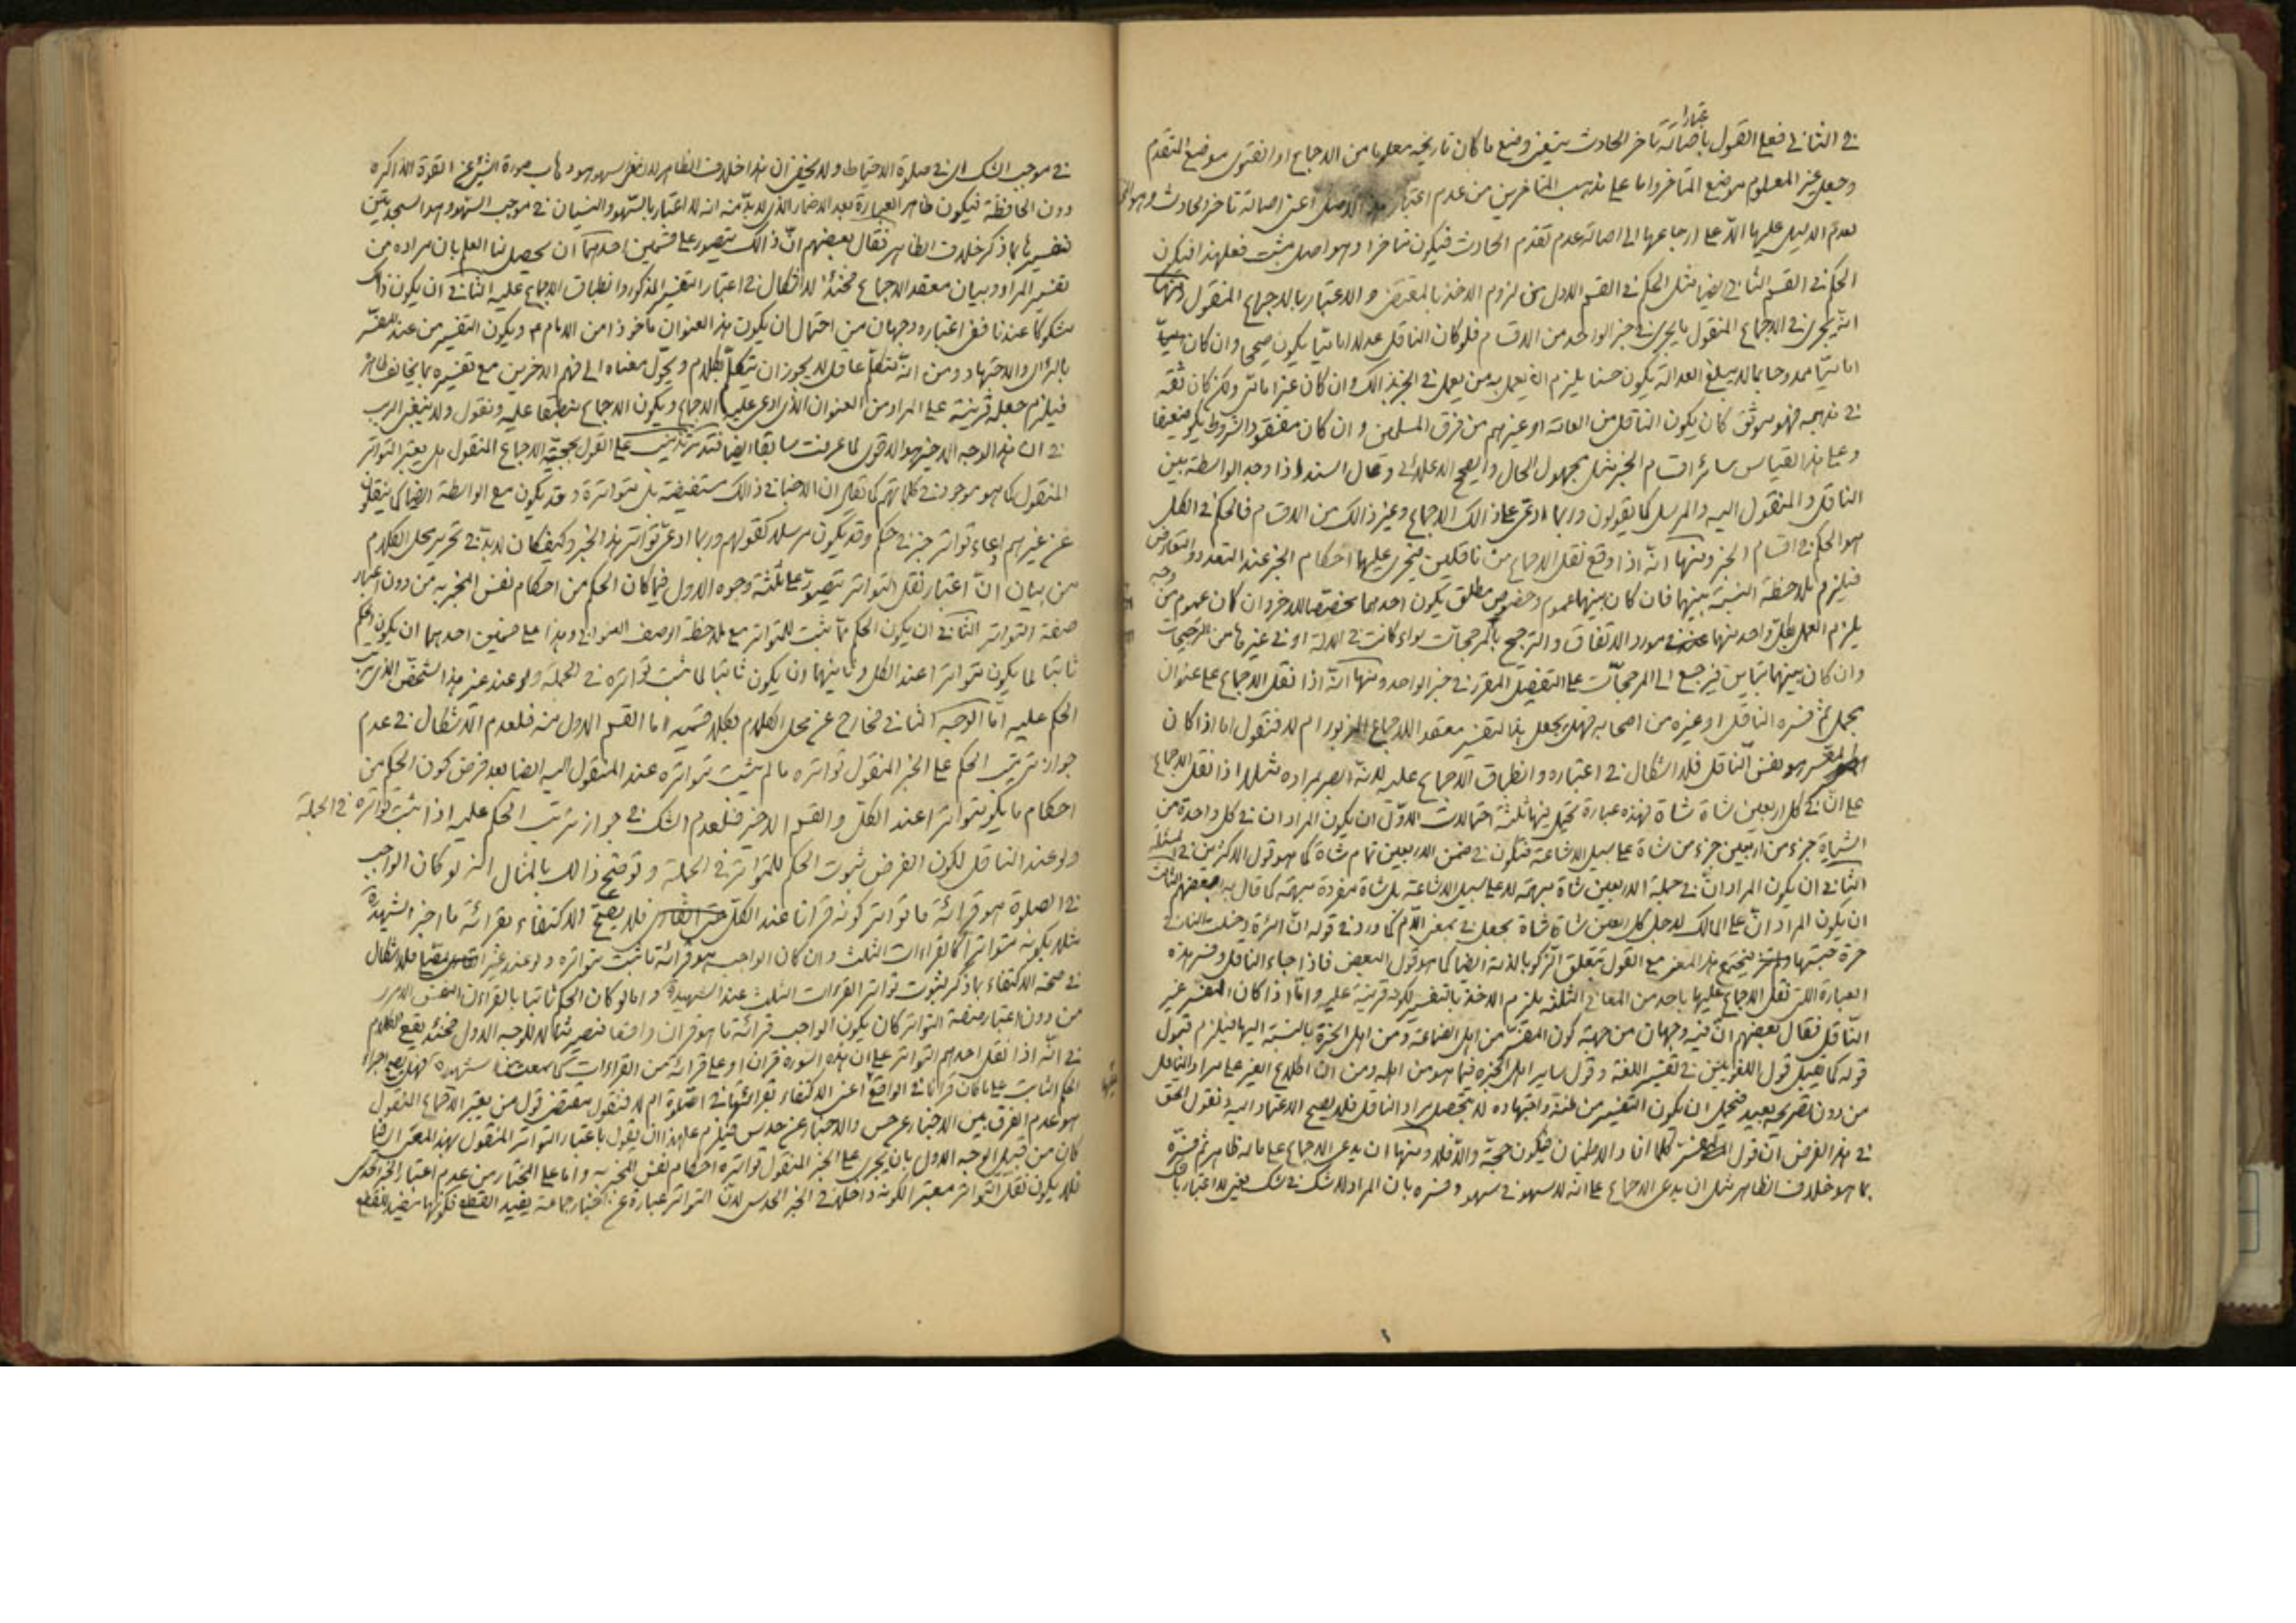 عتبار
في الثاني فعلى القول باصالة تاخر الحادث يتعين وضع ما كان تاريخه معلوما من الاجماع او الفتوى موضع المتقدم
وجعل غير المعلوم موضع المتاخر واما على مذهب المتاخرين من عدم اعتبار هذا الاصل اعني اصالة تاخر الحادث
لعدم الدليل عليها الا على ارجاعها الى اصالة عدم تقدم الحادث فيكون متاخرا وهو اصل مثبت فعلى هذا فيكون
الحكم في القسم الثاني ايضا مثل الحكم في القسم الاول من لزوم الاخذ بالمعتضد والاعتبار بالاجماع المنقول ومنها
انه يجري في الاجماع المنقول ما يجري في خبر الواحد من الاقسام فلو كان الناقل عدلا اماميا يكون صحيحا وان كان
اماميا ممدوحا بما لا يبلغ العدالة يكون حسنا يلزم ان يعمل به من يعمل في الخبر بذالك وان كان غير امامي ولكن كان ثقة
في مذهبه فهو موثق كان يكون الناقل من العامة او غيرهم من فرق المسلمين وان كان مفقود الشروط يكون ضعيفا
وعلى هذا القياس سائر اقسام الخبر مثل مجهول الحال والصحيح الاعلائي وعال السند اذا وجد الواسطة بين
الناقل والمنقول اليه والمرسل كما يقولون وربما ادعى على ذالك الاجماع وغير ذالك من الاقسام فالحكم في الكل
هو الحكم في اقسام الخبر ومنها انه اذا وقع نقل الاجماع من ناقلين فيجري عليها احكام الخبر عند التعدد والتعارض
فيلزم ملاحظة النسبة بينهما فان كان بينهما عموم وخصوص مطلق يكون احدهما مخصصا للاخر وان كان عموم من وجه
يلزم العمل بكل واحد منهما في مورد الاتفاق والترجيح بالمرجحات سواء كانت في الدلالة او في غيرها من الترجيحات
وان كان بينهما تباين فيرجع الى المرجحات على التفصيل المقرر في خبر الواحد ومنها انه اذا نقل الاجماع على عنوان
مجمل ثم فسره الناقل او غيره من اصحابه فهل يجعل هذا التفسير معقد الاجماع المزبور ام لا فنقول اما اذا كان
المفسر هو نفس الناقل فلا اشكال في اعتباره وانطباق الاجماع عليه لانه ابصر بمراده مثلا اذا نقل الاجماع
على ان في كل اربعين شاة شاة فهذه عبارة يحتمل فيها ثلثة احتمالات الاول ان يكون المراد ان في كل واحدة من
الشياة جزء من اربعين جزء من شاة على سبيل الاشاعة فتكون في ضمن الاربعين تمام شاة كما هو قول الاكثرين في المسئلة
الثاني ان يكون المراد ان في جملة الاربعين شاة مبهمة لا على سبيل الاشاعة بل شاة مفردة مبهمة كما قال به بعضهم الثالث
ان يكون المراد ان على المالك لاجل كل اربعين شاة شاة بجعل في بمعنى اللام كما ورد في قوله ان امرئة دخلت النار في
هرة حبستها فيجتمع هذا المعنى مع القول بتعلق الزكوة بالذمة ايضا كما هو قول البعض فاذا جاء الناقل وفسر هذه
العبارة التي نقل الاجماع عليها باحد من المعاني الثلثة يلزم الاخذ بالتفسير لكونه قرينة عليه واما اذا كان المفسر غير
الناقل فقال بعضهم ان فيه وجهان من جهة كون المفسر من اهل الصناعة ومن اهل الخبرة بالنسبة اليها فيلزم قبول
قوله كما يقبل قول اللغويين في تفسير اللغة وقول ساير اهل الخبرة فيما هو من اهله ومن ان اطلاع الغير على مراد الناقل
من دون تصريحه بعيد فيحتمل ان يكون التفسير من ظنه واجتهاده لا بتحصيل مراد الناقل فلا يصح الاعتماد اليه ونقول الحق
في هذا الفرض ان قول المفسر كلما افاد الاطمينان فيكون حجة والا فلا ومنها ان يدعي الاجماع على ما له ظاهر ثم فسره
بما هو خلاف الظاهر مثل ان يدعي الاجماع على انه لا سهو في سهو وفسره بان المراد لا شك في شك يعني لا اعتبار بالشك
في موجب الشك اي في صلوة الاحتياط ولا يخفى ان هذا خلاف الظاهر لان معنى سهو هو ذهاب صورة الشيء عن القوة الذاكرة
دون الحافظة فيكون ظاهر العبارة بعد الاضمار الذي لا بد منه انه لا اعتبار بالسهو والنسيان في موجب السهو وهو السجدتين
فتفسيرها بما ذكر خلاف الظاهر فقال بعضهم ان ذالك يتصور على قسمين احدهما ان يحصل لنا العلم بان مراده من
تفسير المراد وبيان معقد الاجماع فحينئذ لا اشكال في اعتبار التفسير المذكور وانطباق الاجماع عليه الثاني ان يكون ذالك
مشكوكا عندنا ففي اعتباره وجهان من احتمال ان يكون هذا العنوان ماخوذا من الامام م ويكون التفسير من عند المفسر
بالراي والاجتهاد ومن انه متكلم عاقل لا يجوز ان يتكلم بكلام ويحول معناه الى فهم الاخرين مع تفسيره بما يخالف ظاهره
فيلزم جعله قرينة على المراد من العنوان الذي ادعي عليه الاجماع ويكون الاجماع منطبقا عليه ونقول ولا ينبغي الريب
في ان هذا الوجه الاخير هو الاقوى لما عرفت سابقا ايضا على القول بحجية الاجماع المنقول هل يعتبر التواتر
المنقول كما هو موجود في كلماتهم كما تقاير ان الاخبار في ذالك مستفيضة بل متواترة وقد يكون مع الواسطة ايضا كما ينقلون
عن غيرهم ادعاء تواتر خبر في حكم وقد يكون مرسلا كقولهم وربما ادعي تواتر هذا الخبر وكيف كان لا بد في تحرير محل الكلام
من بيان ان اعتبار نقل التواتر يتصور على ثلثة وجوه الاول فيما كان الحكم من احكام نفس المخبر به من دون اعتبار
صفة التواتر الثاني ان يكون الحكم مما يثبت للتواتر مع ملاحظة الوصف العنواني وهذا على ضمنين احدهما ان يكون الحكم
ثابتا لما يكون متواترا عند الكل وثانيهما ان يكون ثابتا لما ثبت تواتره في الجملة ولو عند غير هذا الشخص الذي يترتب
الحكم عليه اما الوجه الثاني فخارج عن محل الكلام بكلا قسميه اما القسم الاول منه فلعدم الاشكال في عدم
جواز ترتيب الحكم على الخبر المنقول تواتره ما لم يثبت تواتره عند المنقول اليه ايضا بعد فرض كون الحكم من
احكام ما يكون متواترا عند الكل والقسم الاخير فلعدم الشك في جواز ترتب الحكم عليه اذا ثبت تواتره في الجملة
ولو عند الناقل لكون الفرض ثبوت الحكم للمتواتر في الجملة وتوضيح ذالك بالمثال انه لو كان الواجب
في الصلوة هو قرائة ما تواتر كونه قرانا عند الكل فلا يصح الاكتفاء بقرائة ما اخبر الشهيد ره
مثلا بكونه متواترا كالقراءات الثلث وان كان الواجب هو قرائة ما ثبت تواتره ولو عند غير فلا اشكال
في صحة الاكتفاء بما ذكر لثبوت تواتر القراءات الثلث عند الشهيد ره واما لو كان الحكم ثابتا بالقران النفس الامري
من دون اعتبار صفة التواتر كان يكون الواجب قرائة ما هو قران واقعا فيصير مثالا للوجه الاول فحينئذ يقع الكلام
في انه اذا نقل احدهم التواتر على ان هذه السورة قران او على قرائة من القراءات كما سمعت من الشهيد ره فهل يصح اجراء
الحكم الثابت على ما كان قرانا في الواقع اعني الاكتفاء بقرائتها في الصلوة ام لا فنقول مقتضى قول من يعتبر الاجماع المنقول
هو عدم الفرق بين الاخبار عن حس والاخبار عن حدس فيلزم على هذا ان يقول باعتبار التواتر المنقول بهذا المعنى ايضا
كان من قبيل الوجه الاول بان يجري على الخبر المنقول تواتره احكام نفس المخبر به واما على المختار من عدم اعتبار الخبر الحدسي
فلا يكون نقل التواتر معتبرا لكونه داخلا في الخبر الحدسي لان التواتر عبارة عن اخبار جماعة يفيد القطع فكونها مفيدا للقطع